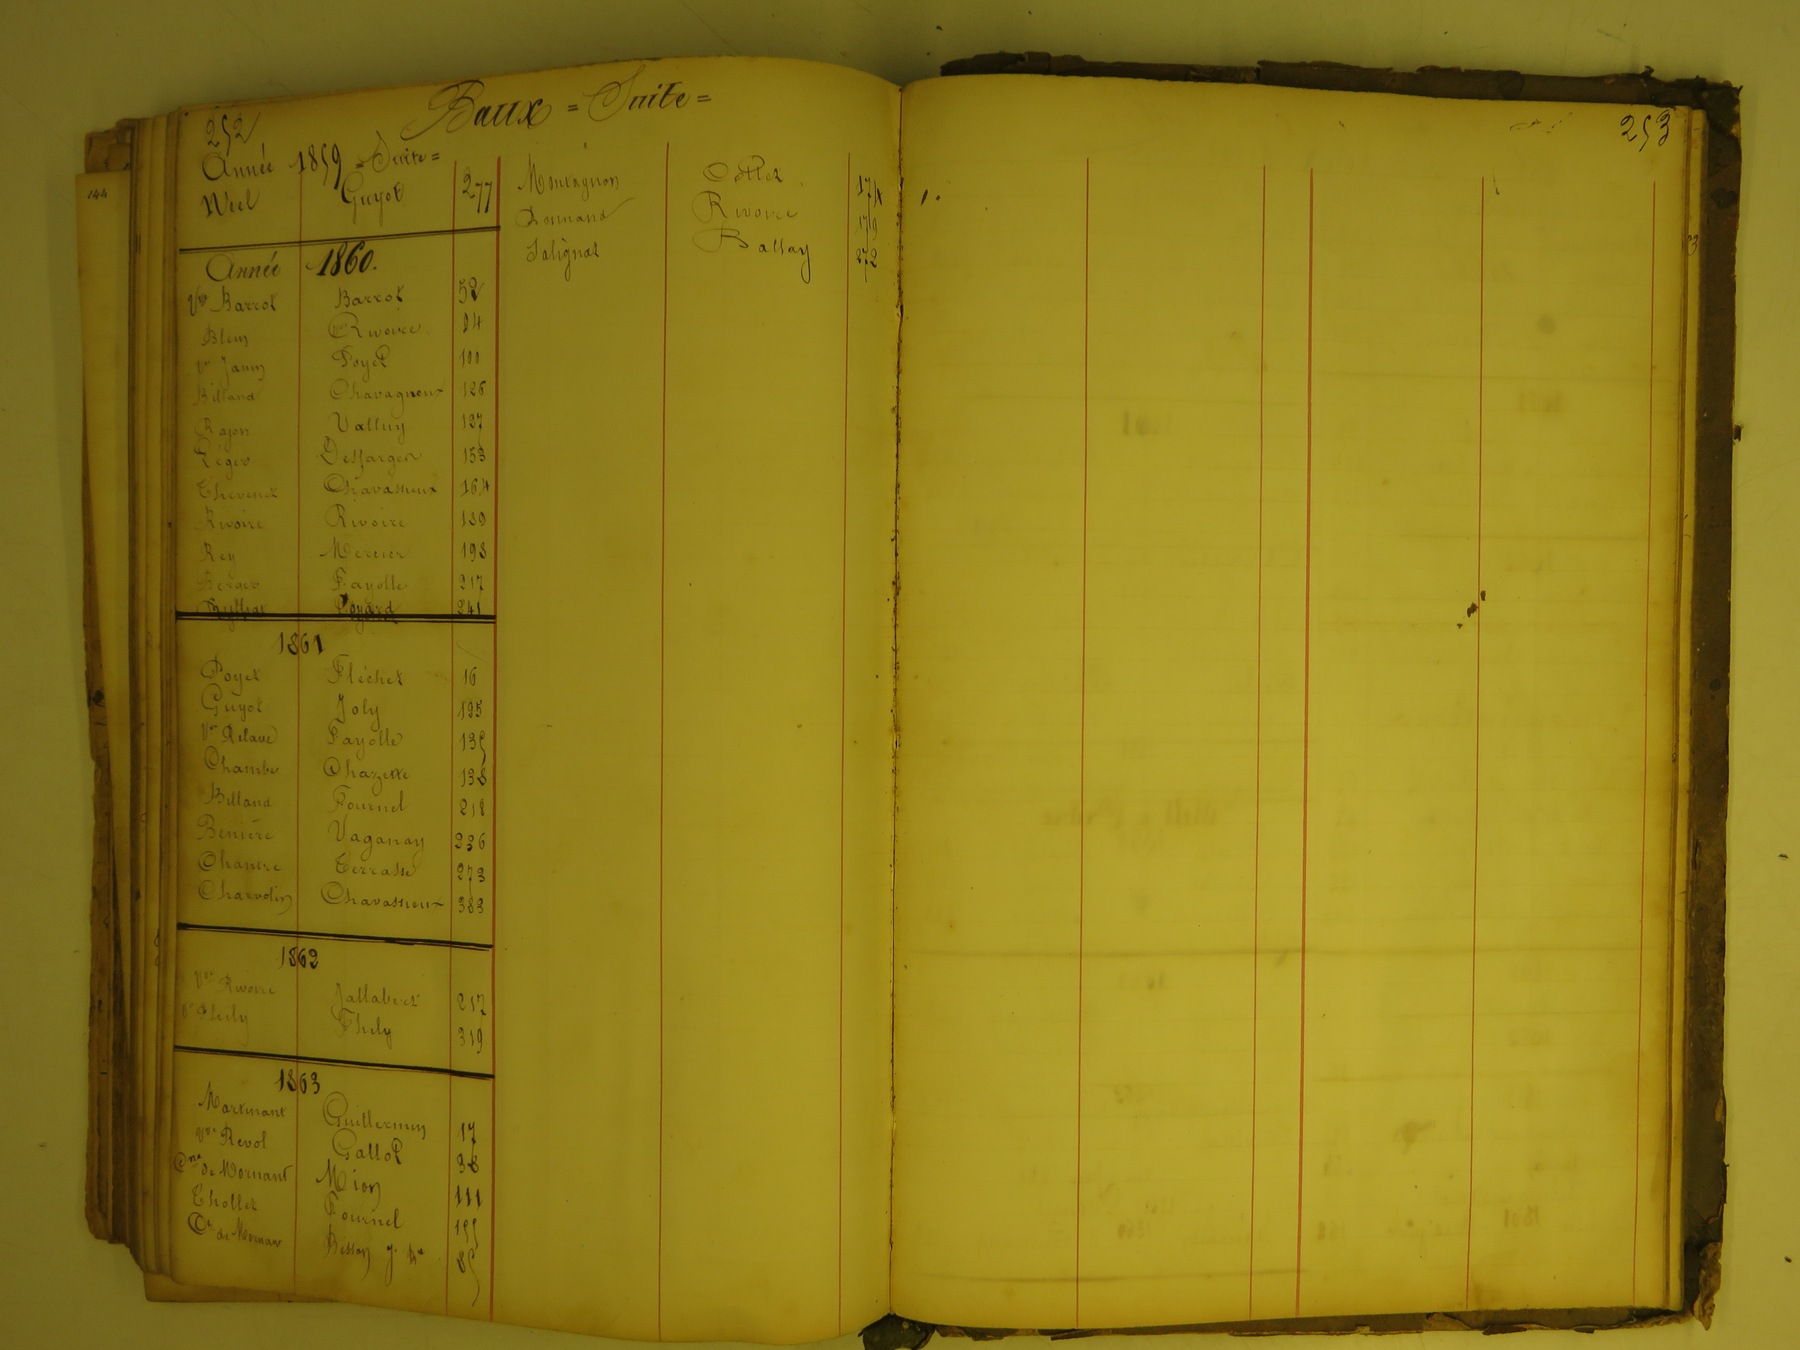 252
Baux = Suite =
Année 1859 = Suite =
Weel Guyot 277
Année 1860.
Vve Barrot Barrot 52
Blein Rivoire 94
Vve Janin Poyet 100
Billand Chavagneux 126
Rajon Valluy 127
Desfarges 153
Thevenet Chavassieux 164
Rivoire Rivoire 189
Rey Mercier 198
Berger Fayolle 217
Poyard 241
1861
Poyet Fléchet 16
Guyot Joly 195
Vve Relave Fayolle 135
Chambe Chazette 138
Billand Fournel 218
Benière Vaganay 236
Chantre Terrasse 273
Charvolin Chavassieux 383
1862
Vve Rivoire Jallabert 217
Vve Thily Thily 319
1863
Martinant Guillermin 17
Vve Revol Gallot 38
Cne de Mornant Mion 111
Thollet Fournel 155
Cne de Mornant Besson 85
Montagnon Collet 174
Rivoire 179
Salignat Ballay 272
253
144